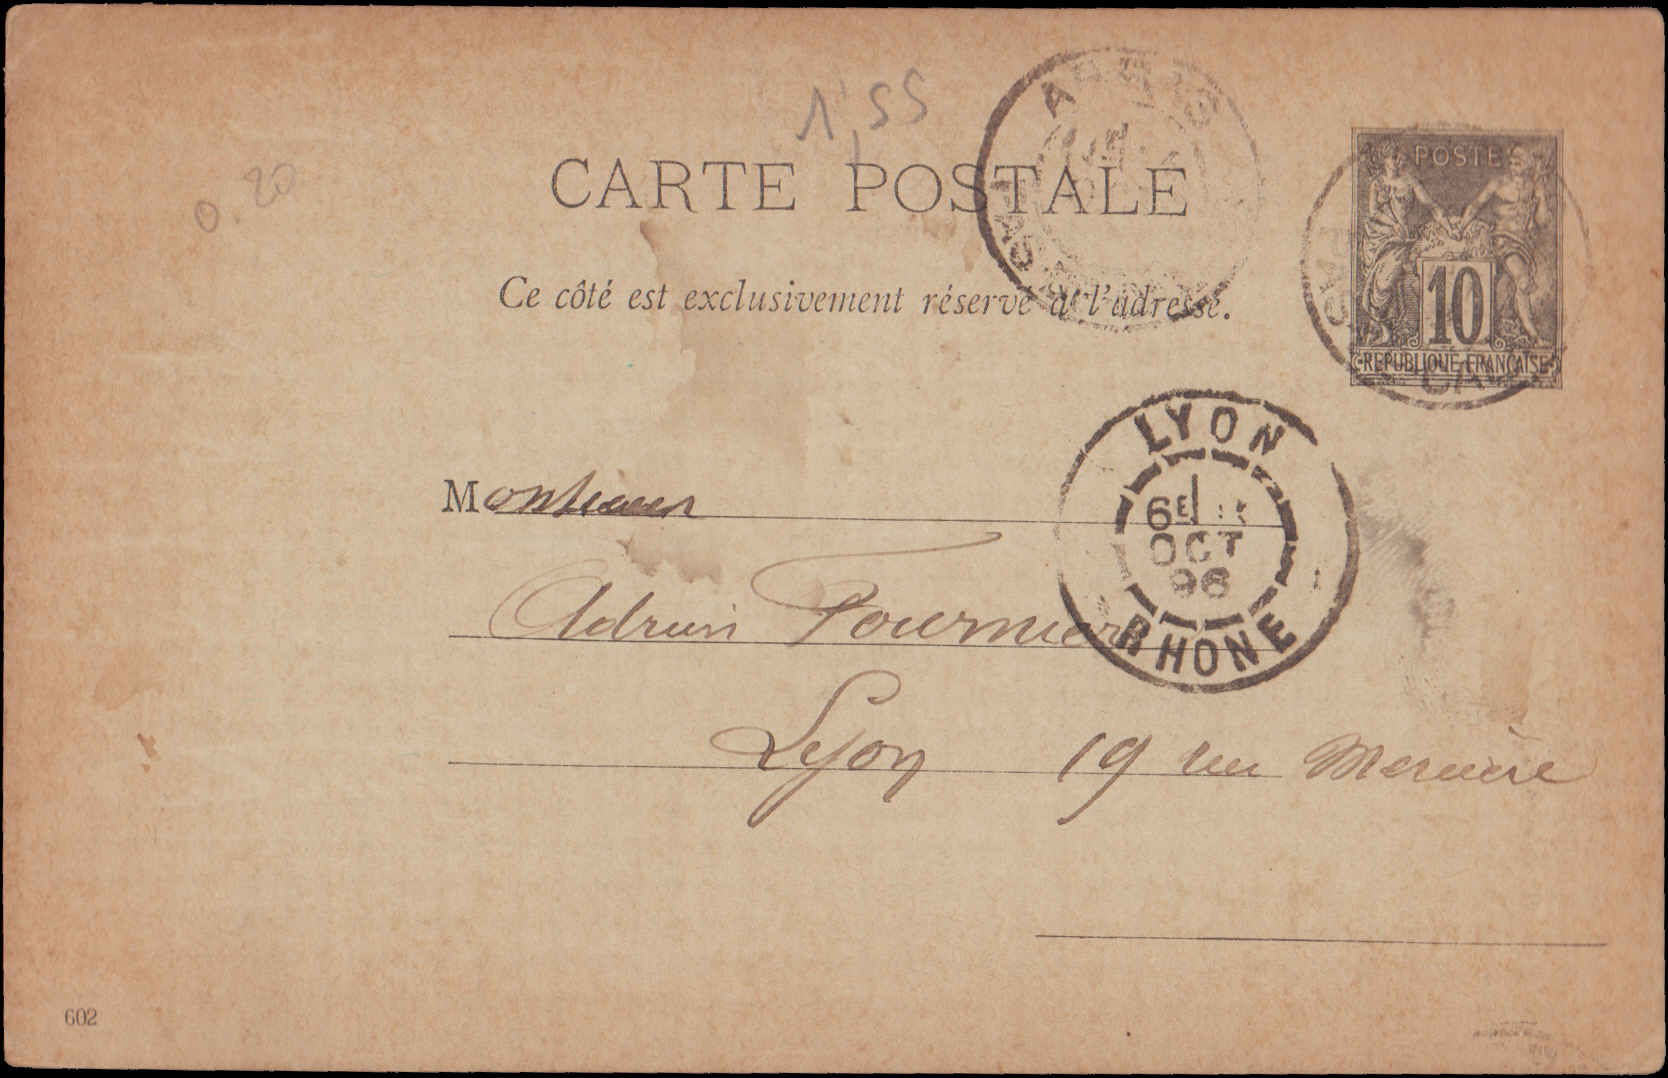 1,55
0.20
CARTE POSTALE
POSTES
10
REPUBLIQUE FRANÇAISE
Ce côté est exclusivement réservé à l'adresse.
LYON
6E
OCT
96
RHONE
Monsieur
Adrien Fournier
Lyon 19 rue Mercière
602